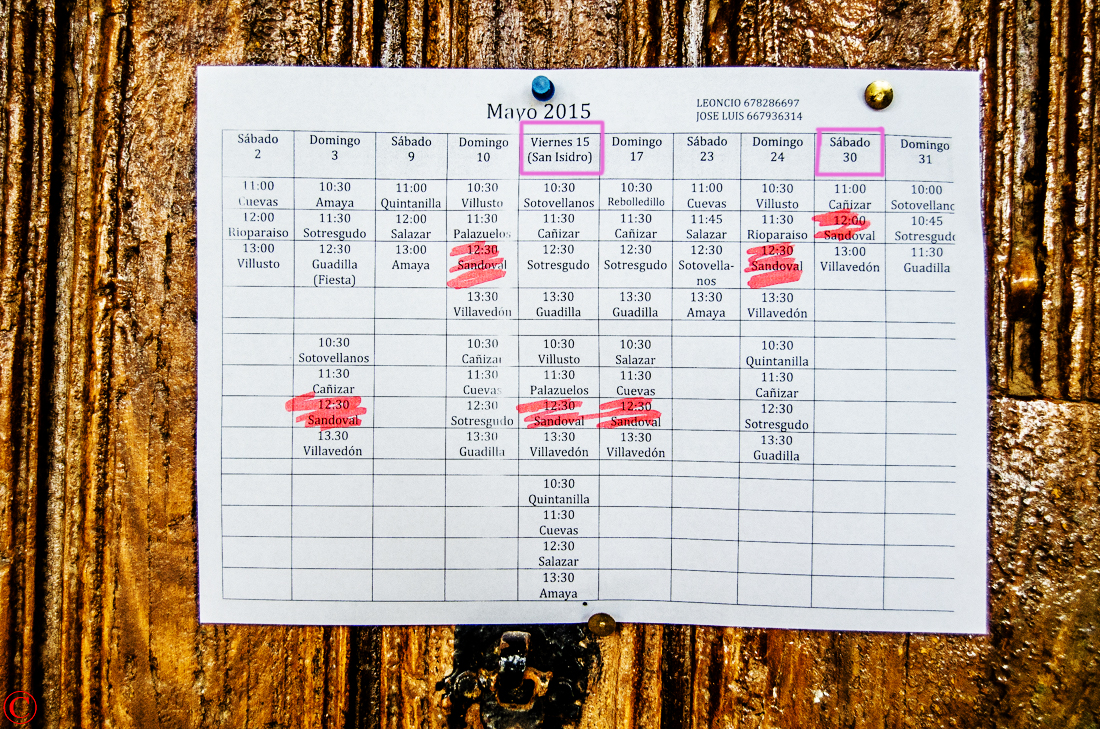 Mayo 2015
LEONCIO 678286697
JOSE LUIS 667936314
Sábado Domingo Sábado Domingo Viernes 15 Domingo Sábado Domingo Sábado Domingo
2 3 9 10 (San Isidro) 17 23 24 30 31
11:00 10:30 11:00 10:30 10:30 10:30 11:00 10:30 11:00 10:00
Cuevas Amaya Quintanilla Villusto Sotovellanos Rebolledillo Cuevas Villusto Cañizar Sotovellano
12:00 11:30 12:00 11:30 11:30 11:30 11:45 11:30 12:00 10:45
Rioparaiso Sotresgudo Salazar Palazuelos Cañizar Cañizar Salazar Rioparaiso Sandoval Sotresgudo
13:00 12:30 13:00 12:30 12:30 12:30 12:30 12:30 13:00 11:30
Villusto Guadilla Amaya Sandoval Sotresgudo Sotresgudo Sotovella- Sandoval Villavedón Guadilla
(Fiesta) nos
13:30 13:30 13:30 13:30 13:30
Villavedón Guadilla Guadilla Amaya Villavedón
10:30 10:30 10:30 10:30 10:30
Sotovellanos Cañizar Villusto Salazar Quintanilla
11:30 11:30 11:30 11:30 11:30
Cañizar Cuevas Palazuelos Cuevas Cañizar
12:30 12:30 12:30 12:30 12:30
Sandoval Sotresgudo Sandoval Sandoval Sotresgudo
13.30 13:30 13:30 13:30 13:30
Villavedón Guadilla Villavedón Villavedón Guadilla
10:30
Quintanilla
11:30
Cuevas
12:30
Salazar
13:30
Amaya